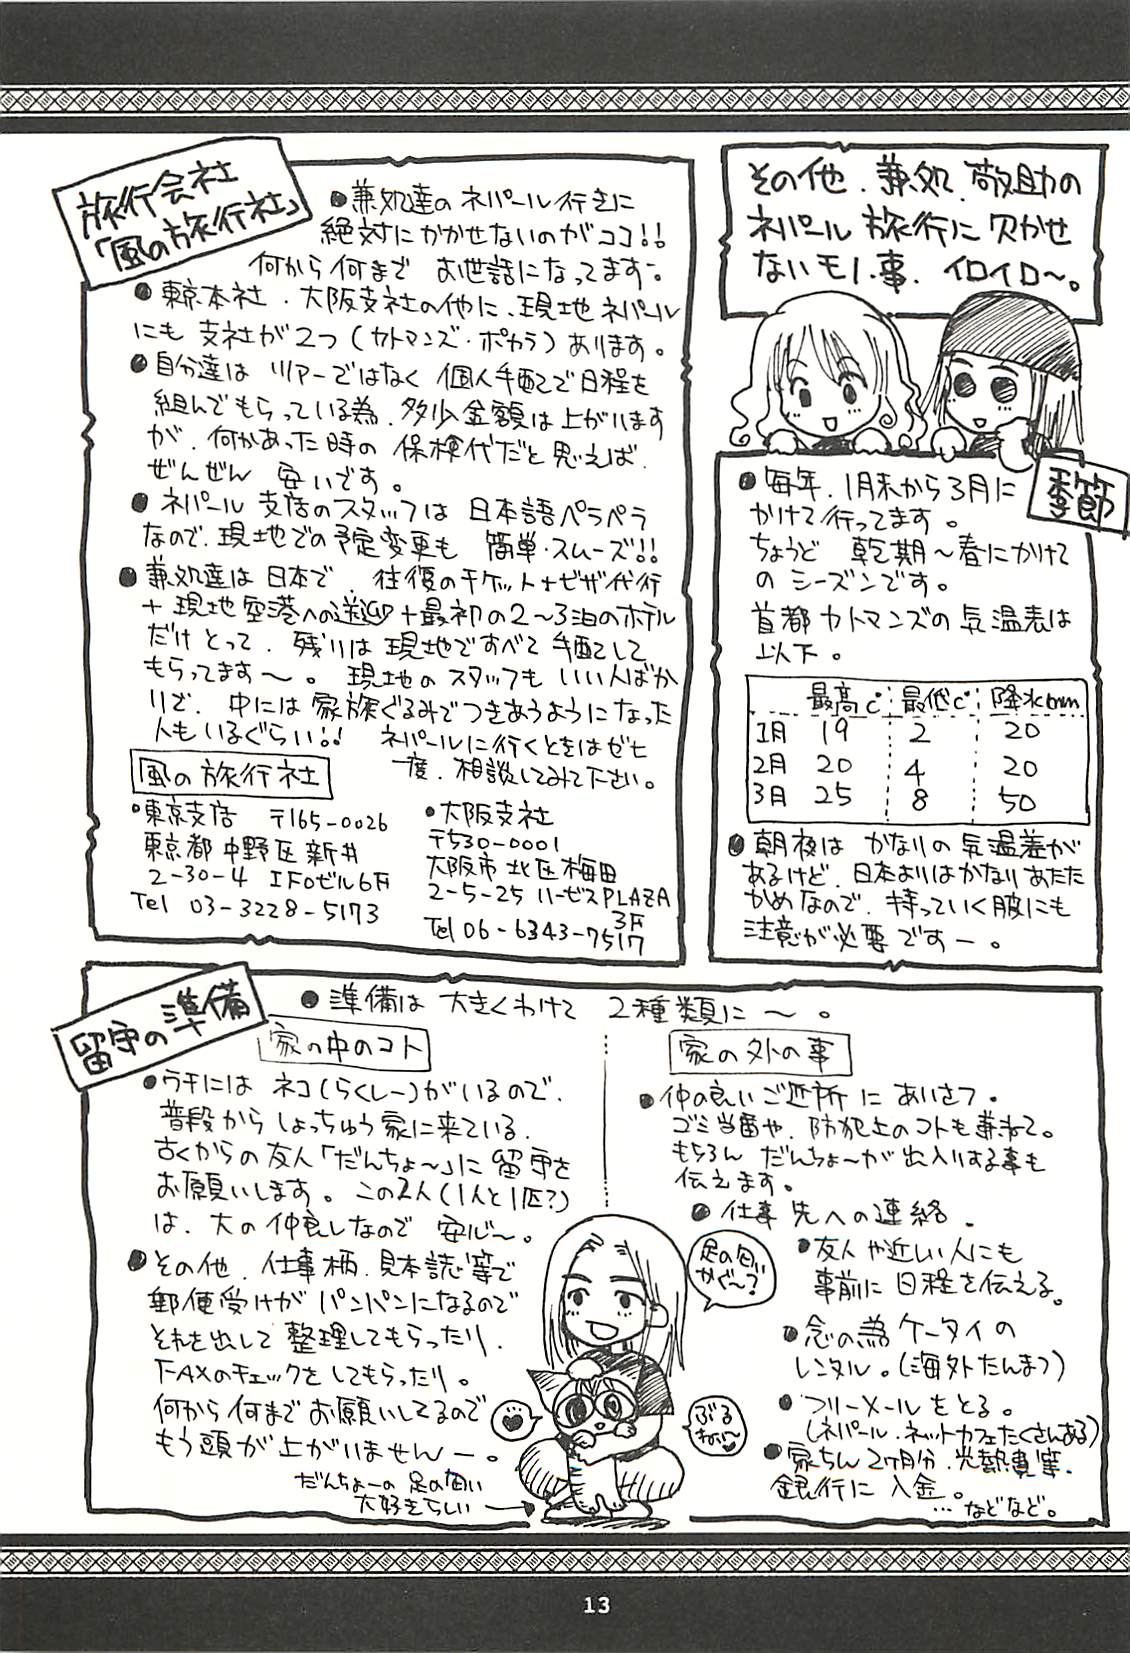 その他、兼処、敬助の
ネパール旅行に欠かせ
ないモノ、事、イロイロ〜。
旅行会社
「風の旅行社」
●兼処達のネパール行きに
絶対にかかせないのがココ!!
何から何まで お世話になってます〜。
●東京本社・大阪支社の他に、現地ネパール
にも支社が2つ(カトマンズ・ポカラ)あります。
●自分達は ツアーではなく 個人手配で日程を
組んでもらっている為、多少金額は上がります
が、何かあった時の保検代だと思えば、
ぜんぜん 安いです。
●ネパール支店のスタッフは 日本語ペラペラ
なので、現地での予定変更も 簡単・スムーズ!!
●兼処達は日本で、往復のチケット+ビザ代行
+現地空港への送迎+最初の2〜3泊のホテル
だけとって、残りは現地ですべて手配して
もらってます〜。 現地のスタッフも いい人ばか
りで、中には家族ぐるみでつきあうようになった
人もいるぐらい!! ネパールに行くときはゼヒ
一度、相談してみて下さい。
風の旅行社
・東京支店 〒165-0026
東京都中野区新井
2-30-4 IFOビル6F
Tel 03-3228-5173
・大阪支社
〒530-0001
大阪市北区梅田
2-5-25 ハービスPLAZA
3F
Tel 06-6343-7517
季節
●毎年、1月末から3月に
かけて行ってます。
ちょうど 乾期〜春にかけて
のシーズンです。
首都カトマンズの気温表は
以下。
最高c° 最低c° 降水mm
1月 19 2 20
2月 20 4 20
3月 25 8 50
●朝夜は かなりの気温差が
あるけど、日本よりはかなりあたた
かめなので、持っていく服にも
注意が必要ですー。
留守の準備
●準備は 大きくわけて 2種類に〜。
家の中のコト
●ウチには ネコ(らくしー)がいるので、
普段からしょっちゅう家に来ている、
古くからの友人「だんちょ〜」に留守を
お願いします。この2人(1人と1匹?)
は、大の仲良しなので 安心〜。
●その他、仕事柄、見本誌等で
郵便受けが パンパンになるので
それを出して整理してもらったり、
FAXのチェックをしてもらったり。
何から何までお願いしてるので
もう頭が上がりませんー。
だんちょーの足の匂い
大好きらしい
足の匂い
かぐ〜?
ぶる
ねぃ〜
家の外の事
●仲の良いご近所にあいさつ。
ゴミ当番や、防犯上のコトも兼ねて。
もちろん だんちょ〜が出入りする事も
伝えます。
●仕事先への連絡。
●友人や近しい人にも
事前に日程を伝える。
●念の為ケータイの
レンタル。(海外たんまつ)
●フリーメールをとる。
(ネパール、ネットカフェたくさんある)
●家ちん2ヶ月分、光熱費等、
銀行に入金。
…などなど。
13